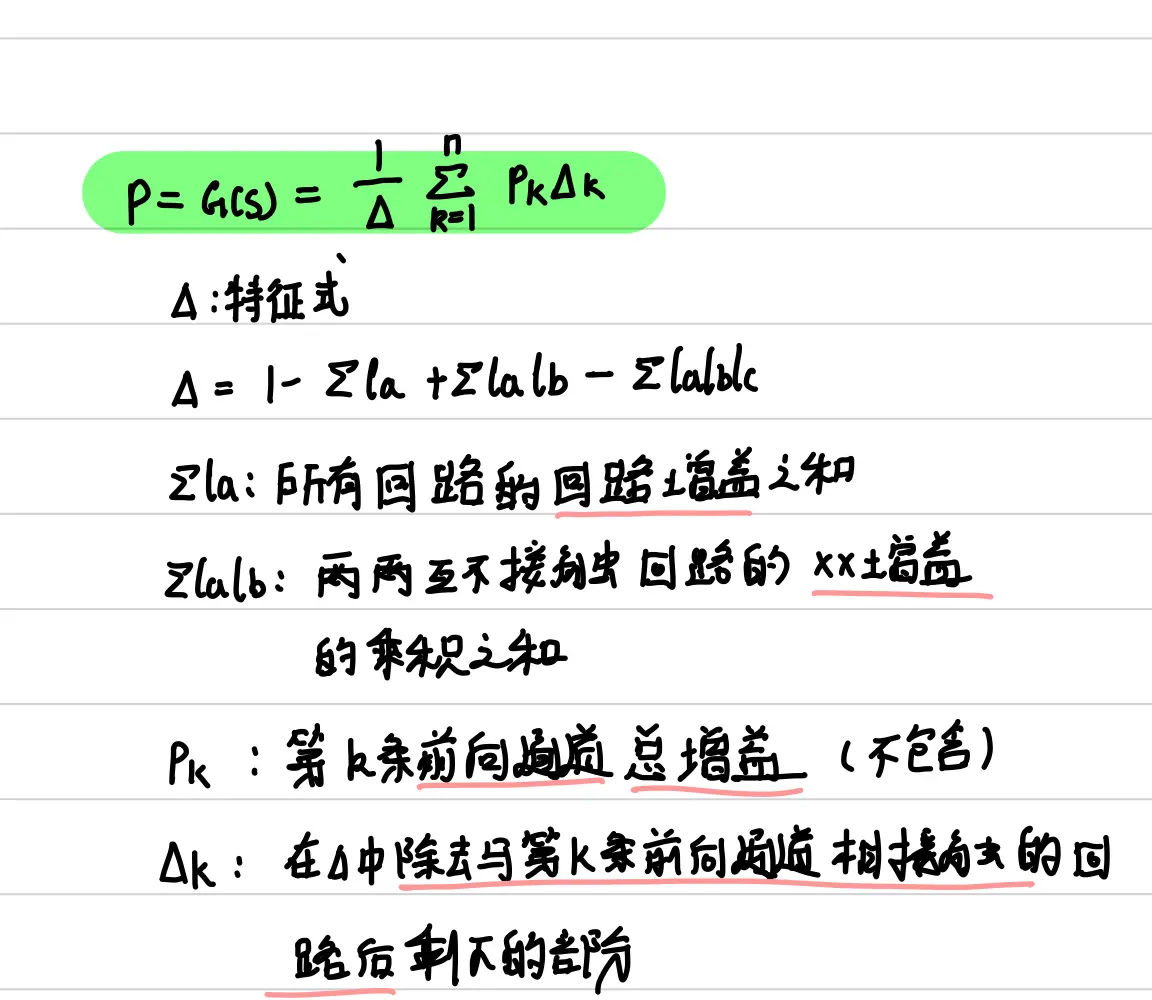 P = G(s) = 1/Δ Σ_{k=1}^{n} P_k Δ_k
Δ:特征式
Δ = 1 - Σla + Σlalb - Σlalblc
Σla: 所有回路的回路增益之和
Σlalb: 两两互不接触回路的 xx增益
的乘积之和
P_k : 第k条前向通道总增益 (不包含)
Δk: 在Δ中除去与第k条前向通道相接触的回
路后剩下的部阶